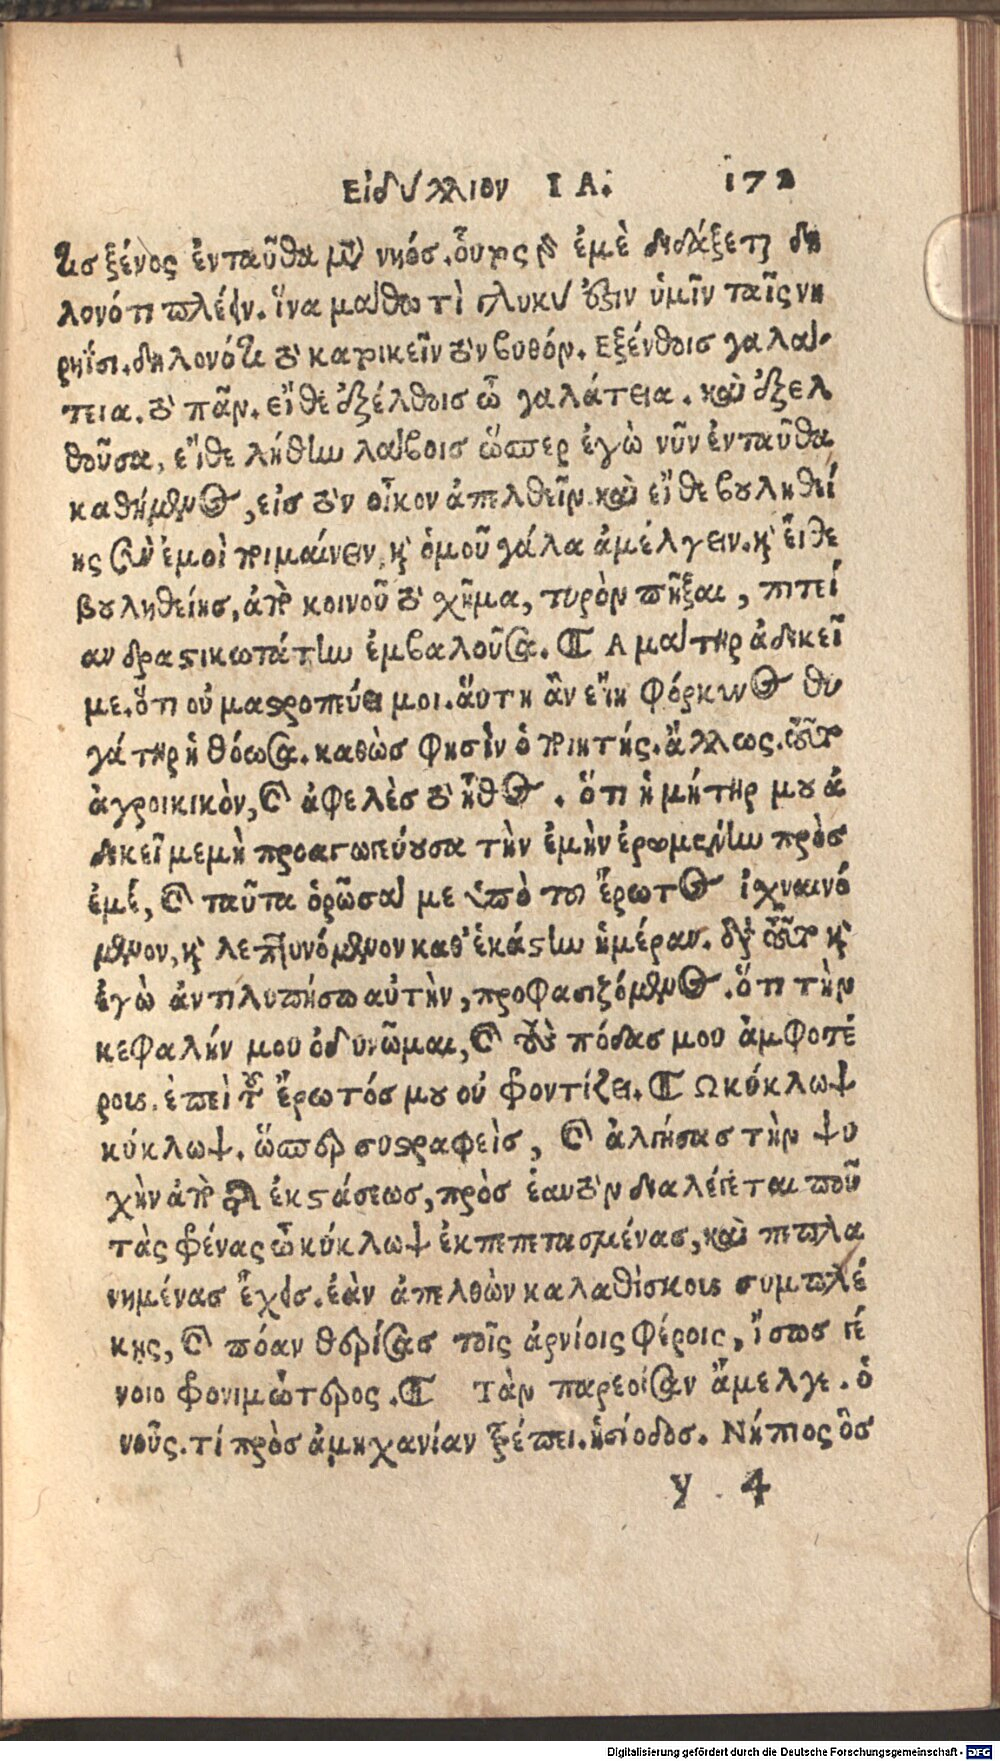 Εἰδύλλιον ΙΑ. 172
τις ξένος ἐνταῦθα μετὰ νηός. οὗτος γὰρ ἐμὲ διδάξεται δη
λονότι πλέειν. ἵνα μάθω τί γλυκύ ἐστιν ὑμῖν ταῖς νη
ρηΐσι. δηλονότι τὸ κατοικεῖν τὸν βυθόν. Εξένθοις γαλά
τεια. τὸ πᾶν. εἴθε ἐξέλθοις ὦ γαλάτεια. καὶ ἐξελ
θοῦσα, εἴθε λήθην λάβοις ὥσπερ ἐγὼ νῦν ἐνταῦθα
καθήμενος, εἰς τὸν οἶκον ἀπελθεῖν. καὶ εἴθε βουληθεί
ης σὺν ἐμοὶ ποιμαίνειν, καὶ ὁμοῦ γάλα ἀμέλγειν. καὶ εἴθε
βουληθείης, ἀπὸ κοινοῦ τὸ χῆμα, τυρὸν πῆξαι, πιτεί
αν δραστικωτάτην ἐμβαλοῦσα. ¶ Α μάτηρ ἀδικεῖ
με. ὅτι οὐ μαστροπεύει μοι. αὕτη ἂν εἴη Φόρκυνος θυ
γάτηρ ἡ θόωσα. καθὼς φησὶν ὁ ποιητής. ἄλλως. τοῦτο
ἀγροικικὸν, καὶ ἀφελὲς τὸ ἦθος. ὅτι ἡ μήτηρ μου ἀ
δικεῖ με μὴ προαγωπεύουσα τὴν ἐμὴν ἐρωμένην πρὸς
ἐμέ, καὶ ταῦτα ὁρῶσά με ὑπὸ τοῦ ἔρωτος ἰχναινό
μενον, καὶ λεπτυνόμενον καθ' ἑκάστην ἡμέραν. διὰ τοῦτο καὶ
ἐγὼ ἀντιλυπήσω αὐτὴν, προφασιζόμενος. ὅτι τὴν
κεφαλήν μου ὀδυνῶμαι, καὶ τοὺς πόδας μου ἀμφοτέ
ρους. ἐπεὶ τοῦ ἔρωτός μου οὐ φροντίζει. ¶ Ω κύκλωψ
κύκλωψ. ὥσπερ συστραφεὶς, καὶ ἀλγήσας τὴν ψυ
χὴν ἀπὸ τῆς ἐκστάσεως, πρὸς ἑαυτὸν διαλέγεται ποῦ
τὰς φρένας ὦ κύκλωψ ἐκπεπετασμένας, καὶ πεπλα
νημένας ἔχεις. ἐὰν ἀπελθὼν καλαθίσκους συμπλέ
κῃς, καὶ πόαν θερίσας τοῖς ἀρνίοις φέροις, ἴσως γέ
νοιο φρονιμώτερος. ¶ Τὰν παρεοῖσαν ἄμελγε. ὁ
νοῦς. τί πρὸς ἀμηχανίαν τρέπει. ἡσίοδος. Νήπιος ὃς
y 4